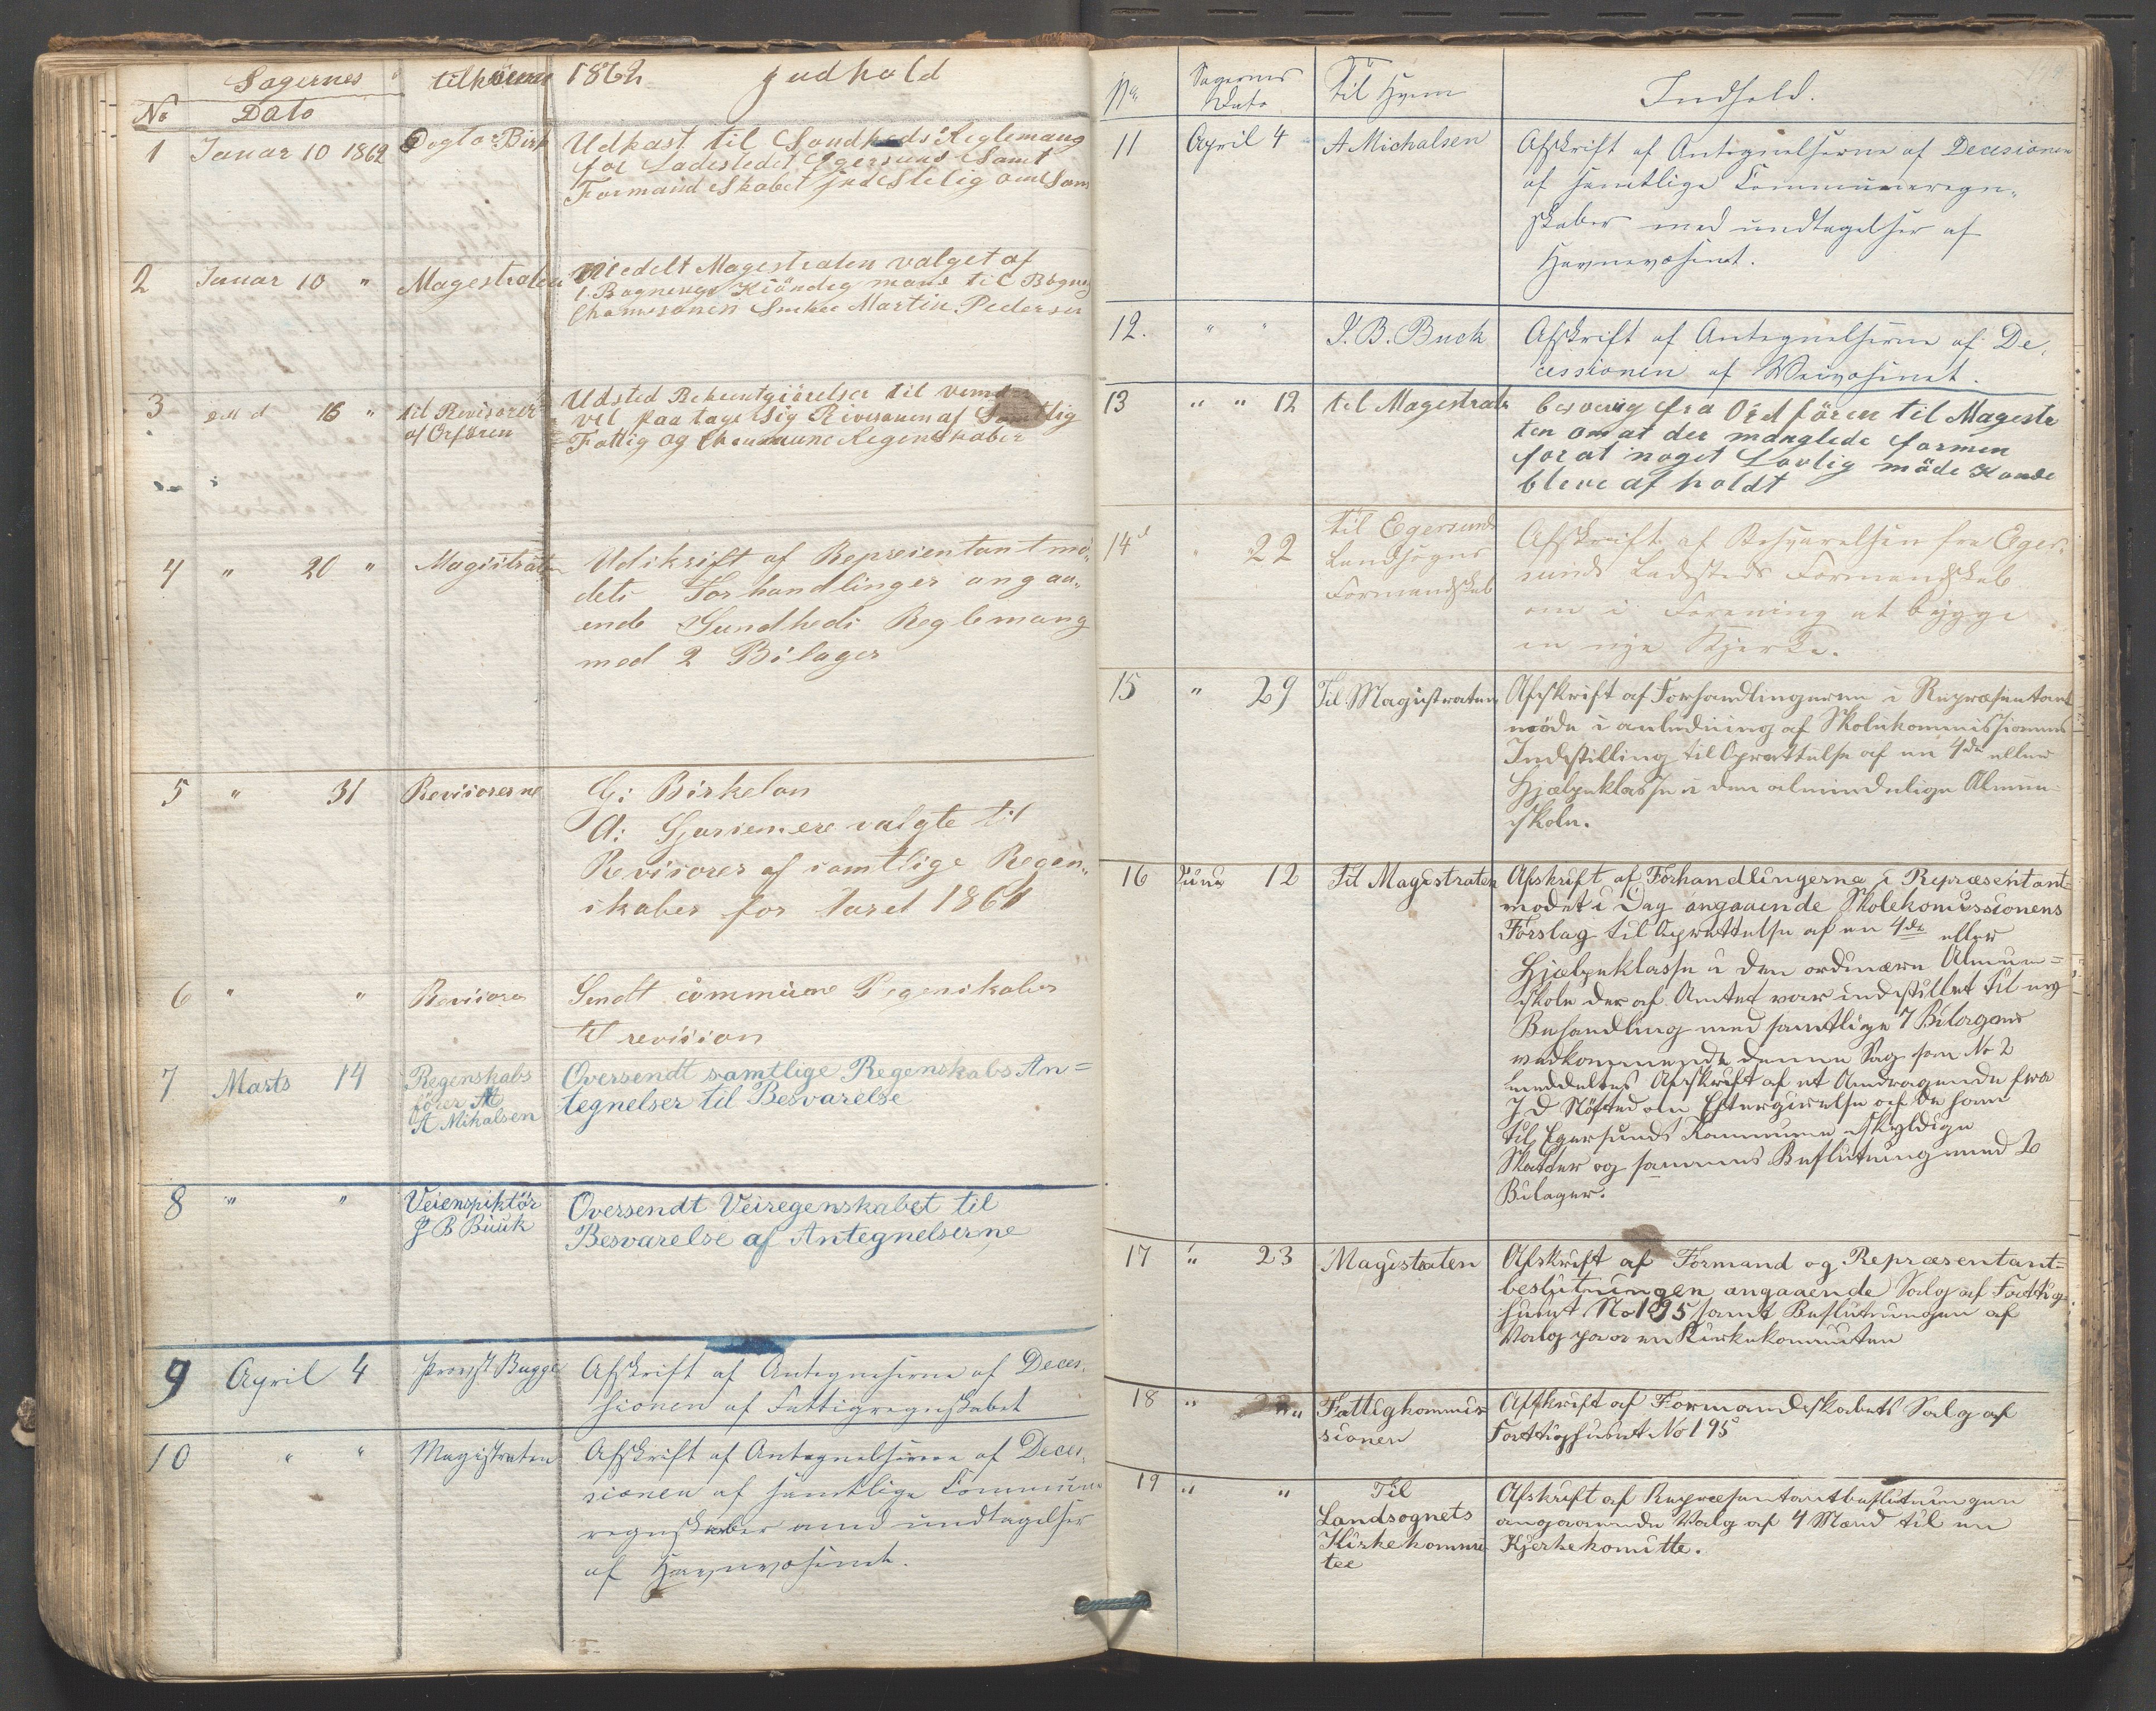 Sagernes tilhörer 1862 Indhold
No Dato
1 Januar 10 1862 Dogto Birk Udkast til Sundheds Reglemang
for Ladestedet Egersund Samt
Formandskabet
2 Januar 10 " Magestraten Medelt Magestraten valget af
1 Bögnings Kiöndig mand til Bögnings
Martin Pedersen
3 " 16 " til Revisorer Udsted Bekientgiörelse til
af Orfören vil paa tage Sig Revisonen af Samtlig
Fattig og Chommune Regenskaber
4 " 20 " Magistraten Udskrift af Representantmö-
dets Forhandlinger angaa-
ende Sundheds Reglemang
med 2 Bilager
5 " 31 Revisorerne G: Birkelan
A: valgte til
Revisorer af samtlige Regen-
skaber for Aaret 1861
6 " " Revisore Sendt commune Regenskaber
til revision
7 Marts 14 Regenskabs Oversendt samtlige Regenskabs An=
förer A Mikalsen tegnelser til Besvarelse
8 " " Veienspiktör Oversendt Veiregenskabet til
J B Buuk Besvarelse af Antegnelserne
9 April 4 Provst Bugge Afskrift af Antegnelserne af Deces-
sionen af Fattigregnskabet
10 " " Magistraten Afskrift af Antegnelserne af Deces-
sionen af samtlige Commune
regnskaber med undtagelser
af Havnevæsenet.
No Sagernes Dato Til Hvem Indhold.
11 April 4 A Michalsen Afskrift af Antegnelserne af Decesionen
af samtlige Communeregn-
skaber med undtagelser af
Havnevæsenet.
12. " " J. B. Buch Afskrift af Antegnelserne af De-
cessionen af Veivæsenet.
13 " " 12 til Magestrate besverig fra Ordfören til Magestra
ten om at der manglede formen
for at noget Lovlig möde Kunde
bleve af holdt
14 " 22 Til Egersunds Afskrift af Besvarelsen fra Eger-
Landsogns sunds Ladesteds Formandskab
Formandskab om i Forening at bygge
en nye Kjerke.
15 " 29 Til Magistraten Afskrift af Forhandlingerne i Repræsentant
möde i anledning af Skolekommissionens
Indstilling til Oprettelse af en 4de eller
Hjælpeklasse i den almindelige Almue-
skole.
16 Juni 12 Til Magistraten Afskrift af Forhandlingerne i Repræsentant=
mödet i Dag angaaende Skolekomissionens
Forslag til Oprettelse af en 4de eller
Hjælpeklasse i den ordinære Almue=
skole der af Amtet var indstillet til ny
Behandling med samtlige 7 Bilagene
vedkommende denne Sag som No 2
meddeltes Afskrift af et Andragende fra
J D om Eftergivelse af de ham
til Egersunds Kommune skyldige
Skatter og sammes Beslutning med 2
Bilager.
17 " 23 Magistraten Afskrift af Formand og Repræsentant=
beslutningen angaaende Salg af Fattig
huset No 195 samt Beslutningen af
Valg paa en Kirkekomiteen
18 " " Fattigkommis Afskrift af Formandskabets Salg af
sionen Fattighuset No 195
19 " " Til Afskrift af Repræsentantbeslutningen
Landsognets angaaende Valg af 4 Mænd til en
Kirkekommi Kjerkekomitte.
tee